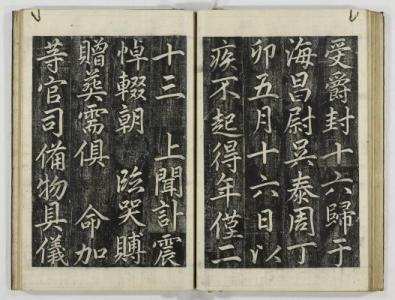 受爵封十六歸于
海昌尉吳泰周丁
卯五月十六日以
疾不起得年僅二
十三　上聞訃震
悼輟朝　臨哭賻
贈葬需俱　命加
等官司備物具儀